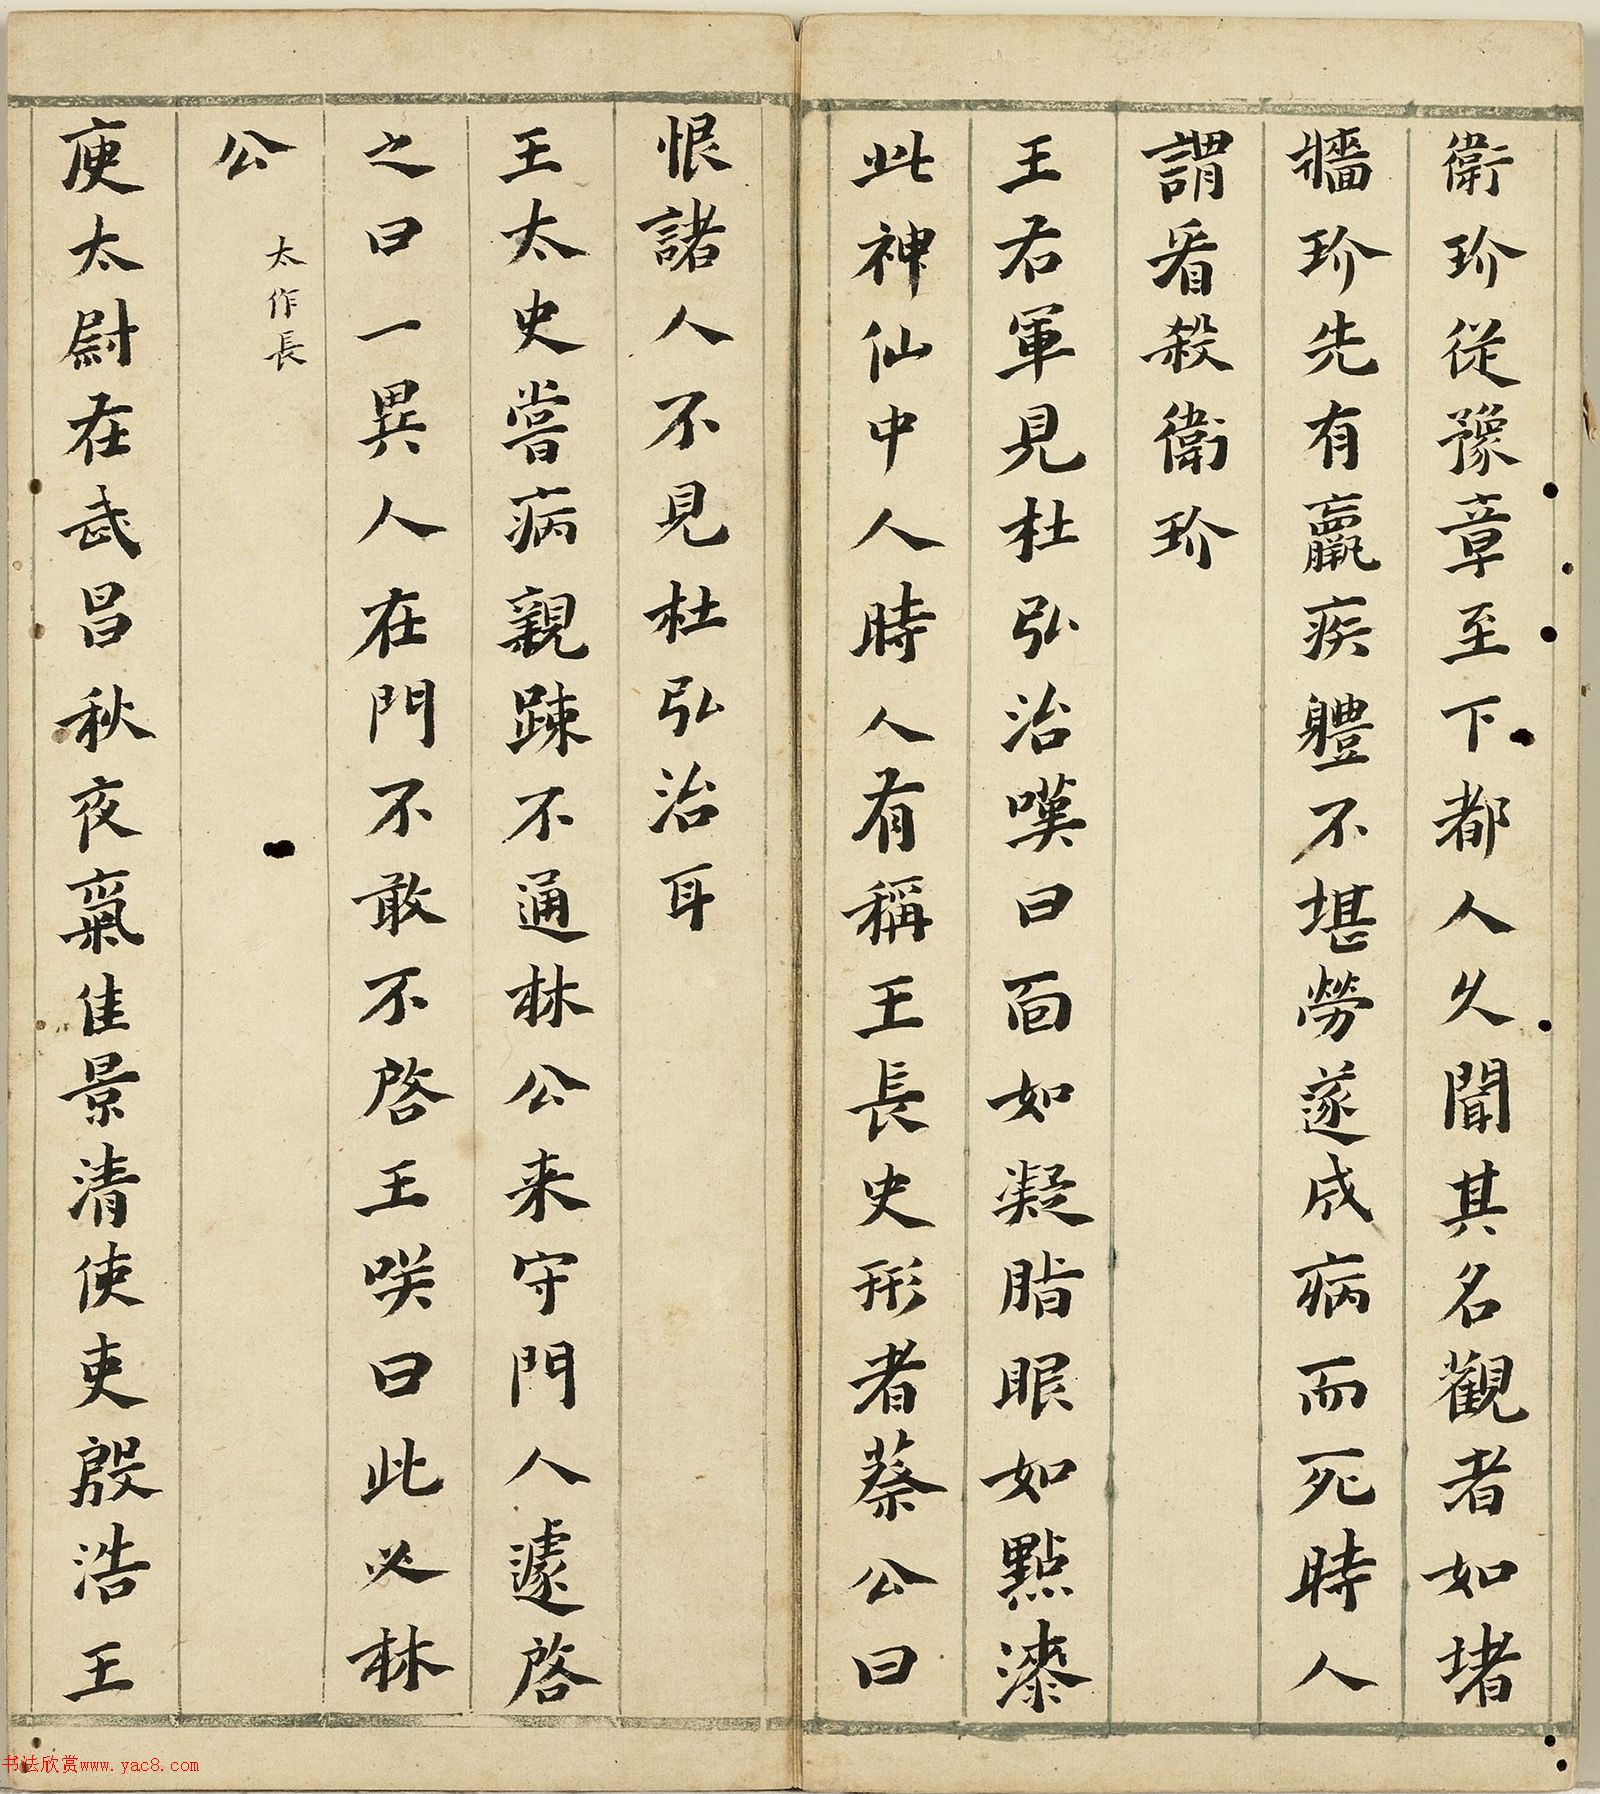 衛玠從豫章至下都人久聞其名觀者如堵
牆玠先有羸疾體不堪勞遂成病而死時人
謂看殺衛玠
王右軍見杜弘治嘆曰面如凝脂眼如點漆
此神仙中人時人有稱王長史形者蔡公曰
恨諸人不見杜弘治耳
王太史嘗病親踈不通林公来守門人遽啓
之曰一異人在門不敢不啓王咲曰此必林
公
太作長
庾太尉在武昌秋夜氣佳景清使吏殷浩王
书法欣赏www.yac8.com